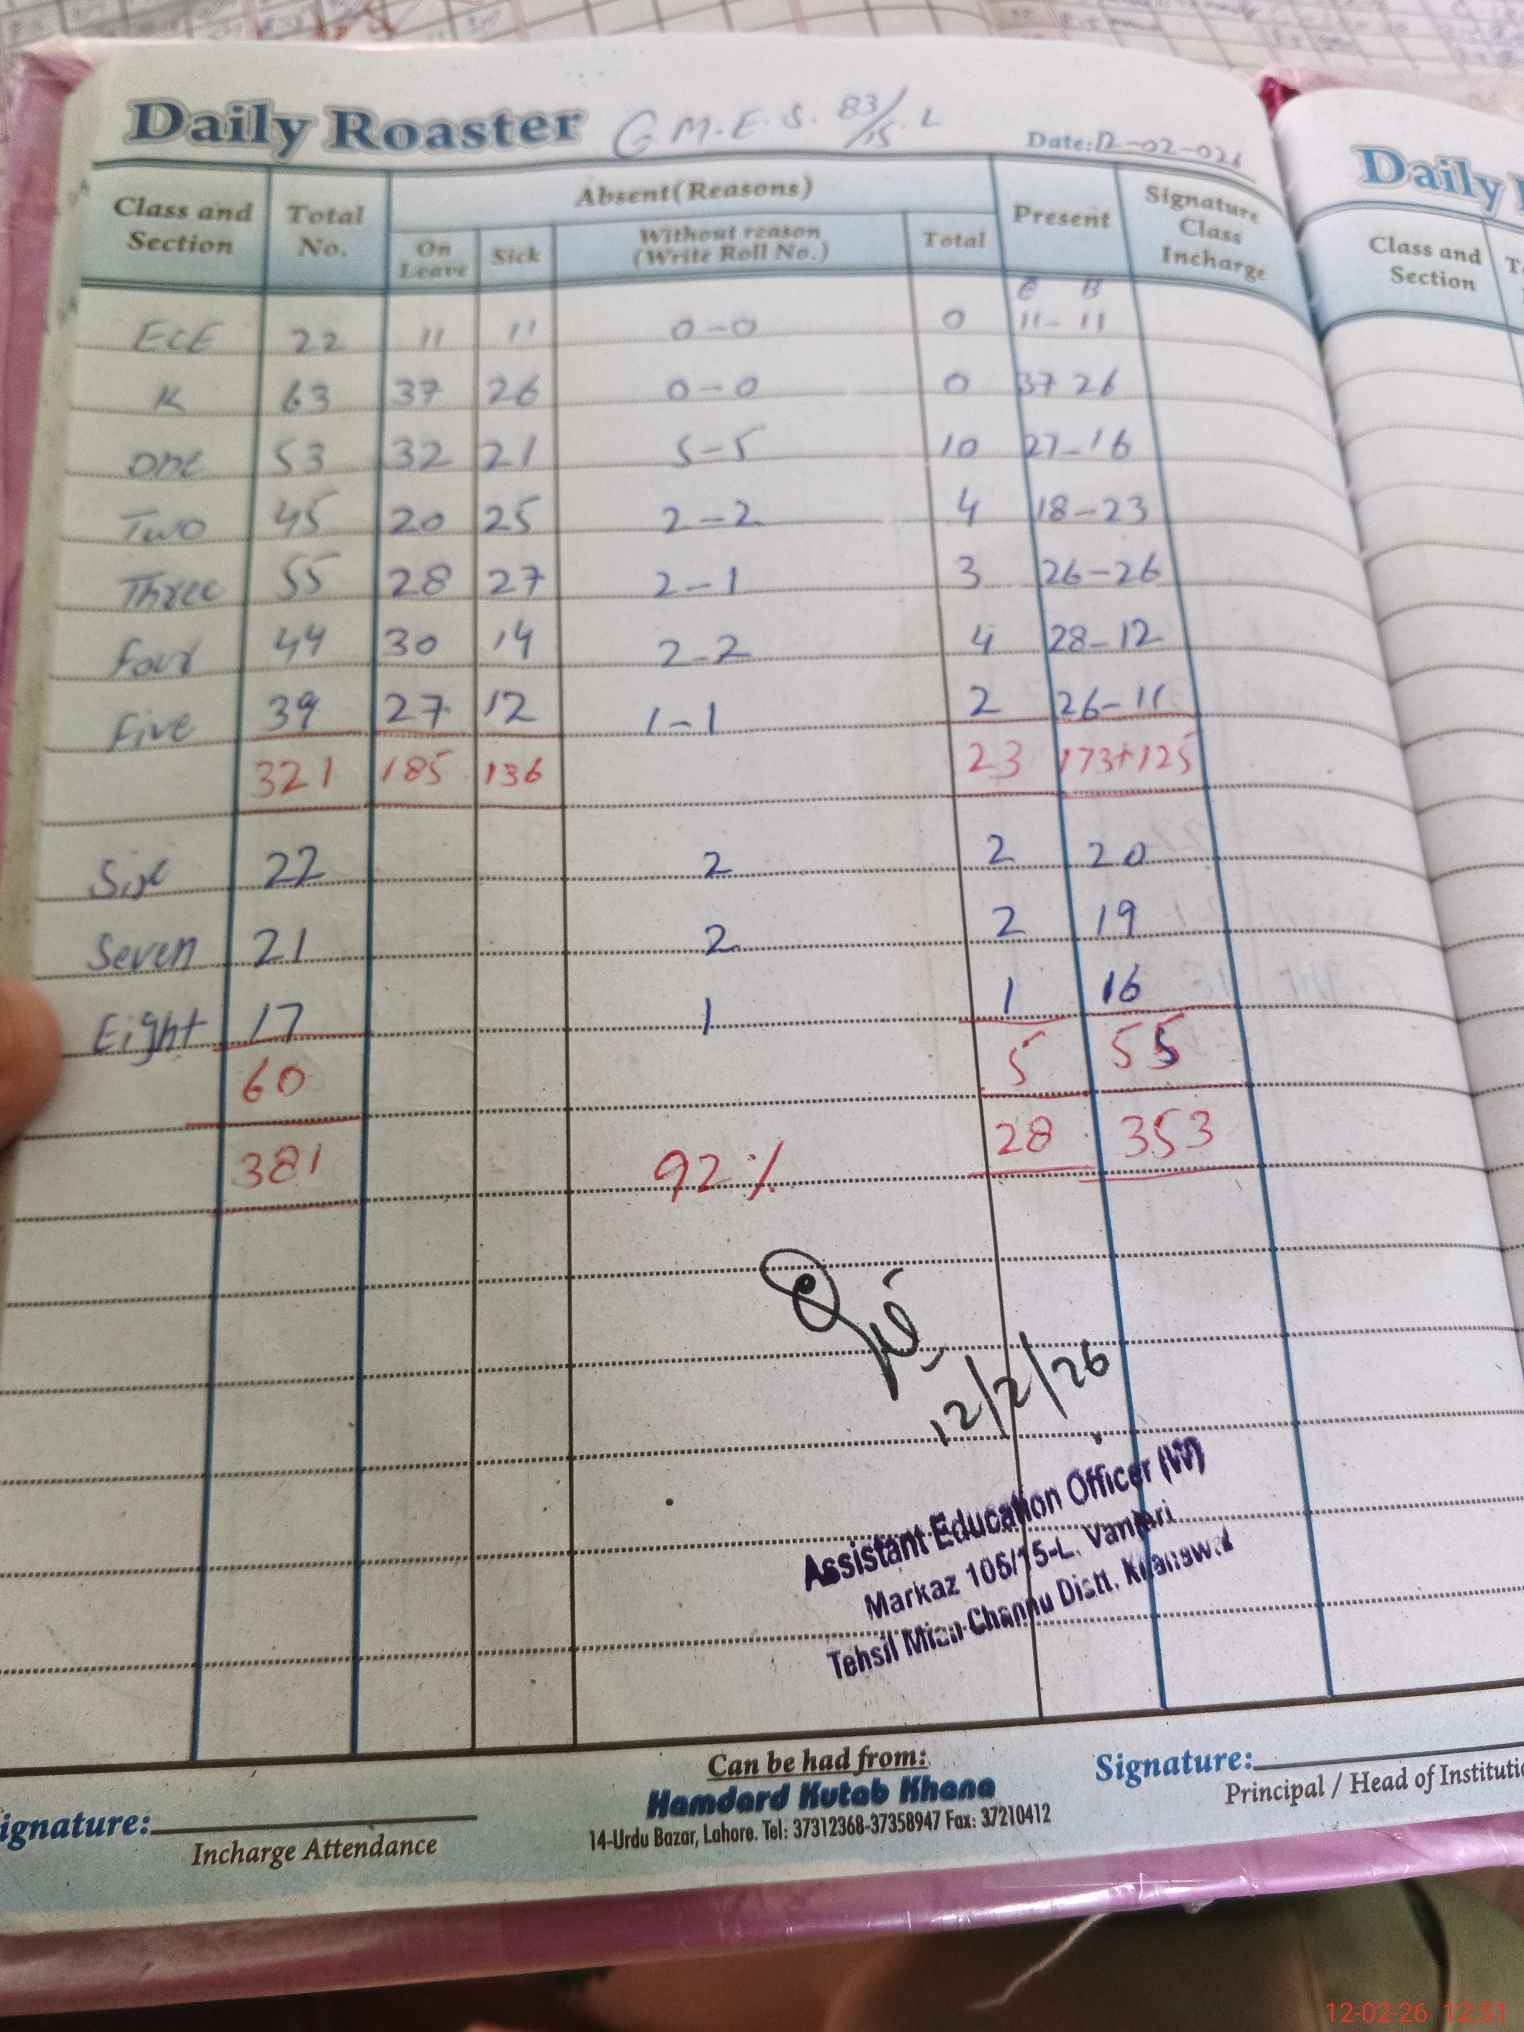 Daily Roaster G.M.E.S. 83/15.L
Date: 12-02-026
Class and Section Total No. Absent(Reasons) Present Signature Class Incharge
On Leave Sick Without reason (Write Roll No.) Total
G B
ECE 22 11 11 0-0 0 11-11
K 63 37 26 0-0 0 37 26
One 53 32 21 5-5 10 27-16
Two 45 20 25 2-2 4 18-23
Three 55 28 27 2-1 3 26-26
Four 44 30 14 2-2 4 28-12
Five 39 27 12 1-1 2 26-11
321 185 136 23 173+125
Six 22 2 2 20
Seven 21 2 2 19
Eight 17 1 1 16
60 5 55
381 92% 28 353
12/2/26
Assistant Education Officer (W)
Markaz 105/15-L, Vanjari
Tehsil Mian Channu Distt. Khanewal
ignature:
Incharge Attendance
Can be had from:
Hamdard Kutab Khana
14-Urdu Bazar, Lahore. Tel: 37312368-37358947 Fax: 37210412
Signature:
Principal / Head of Instituti
Daily
Class and Section
12-02-26 12:51